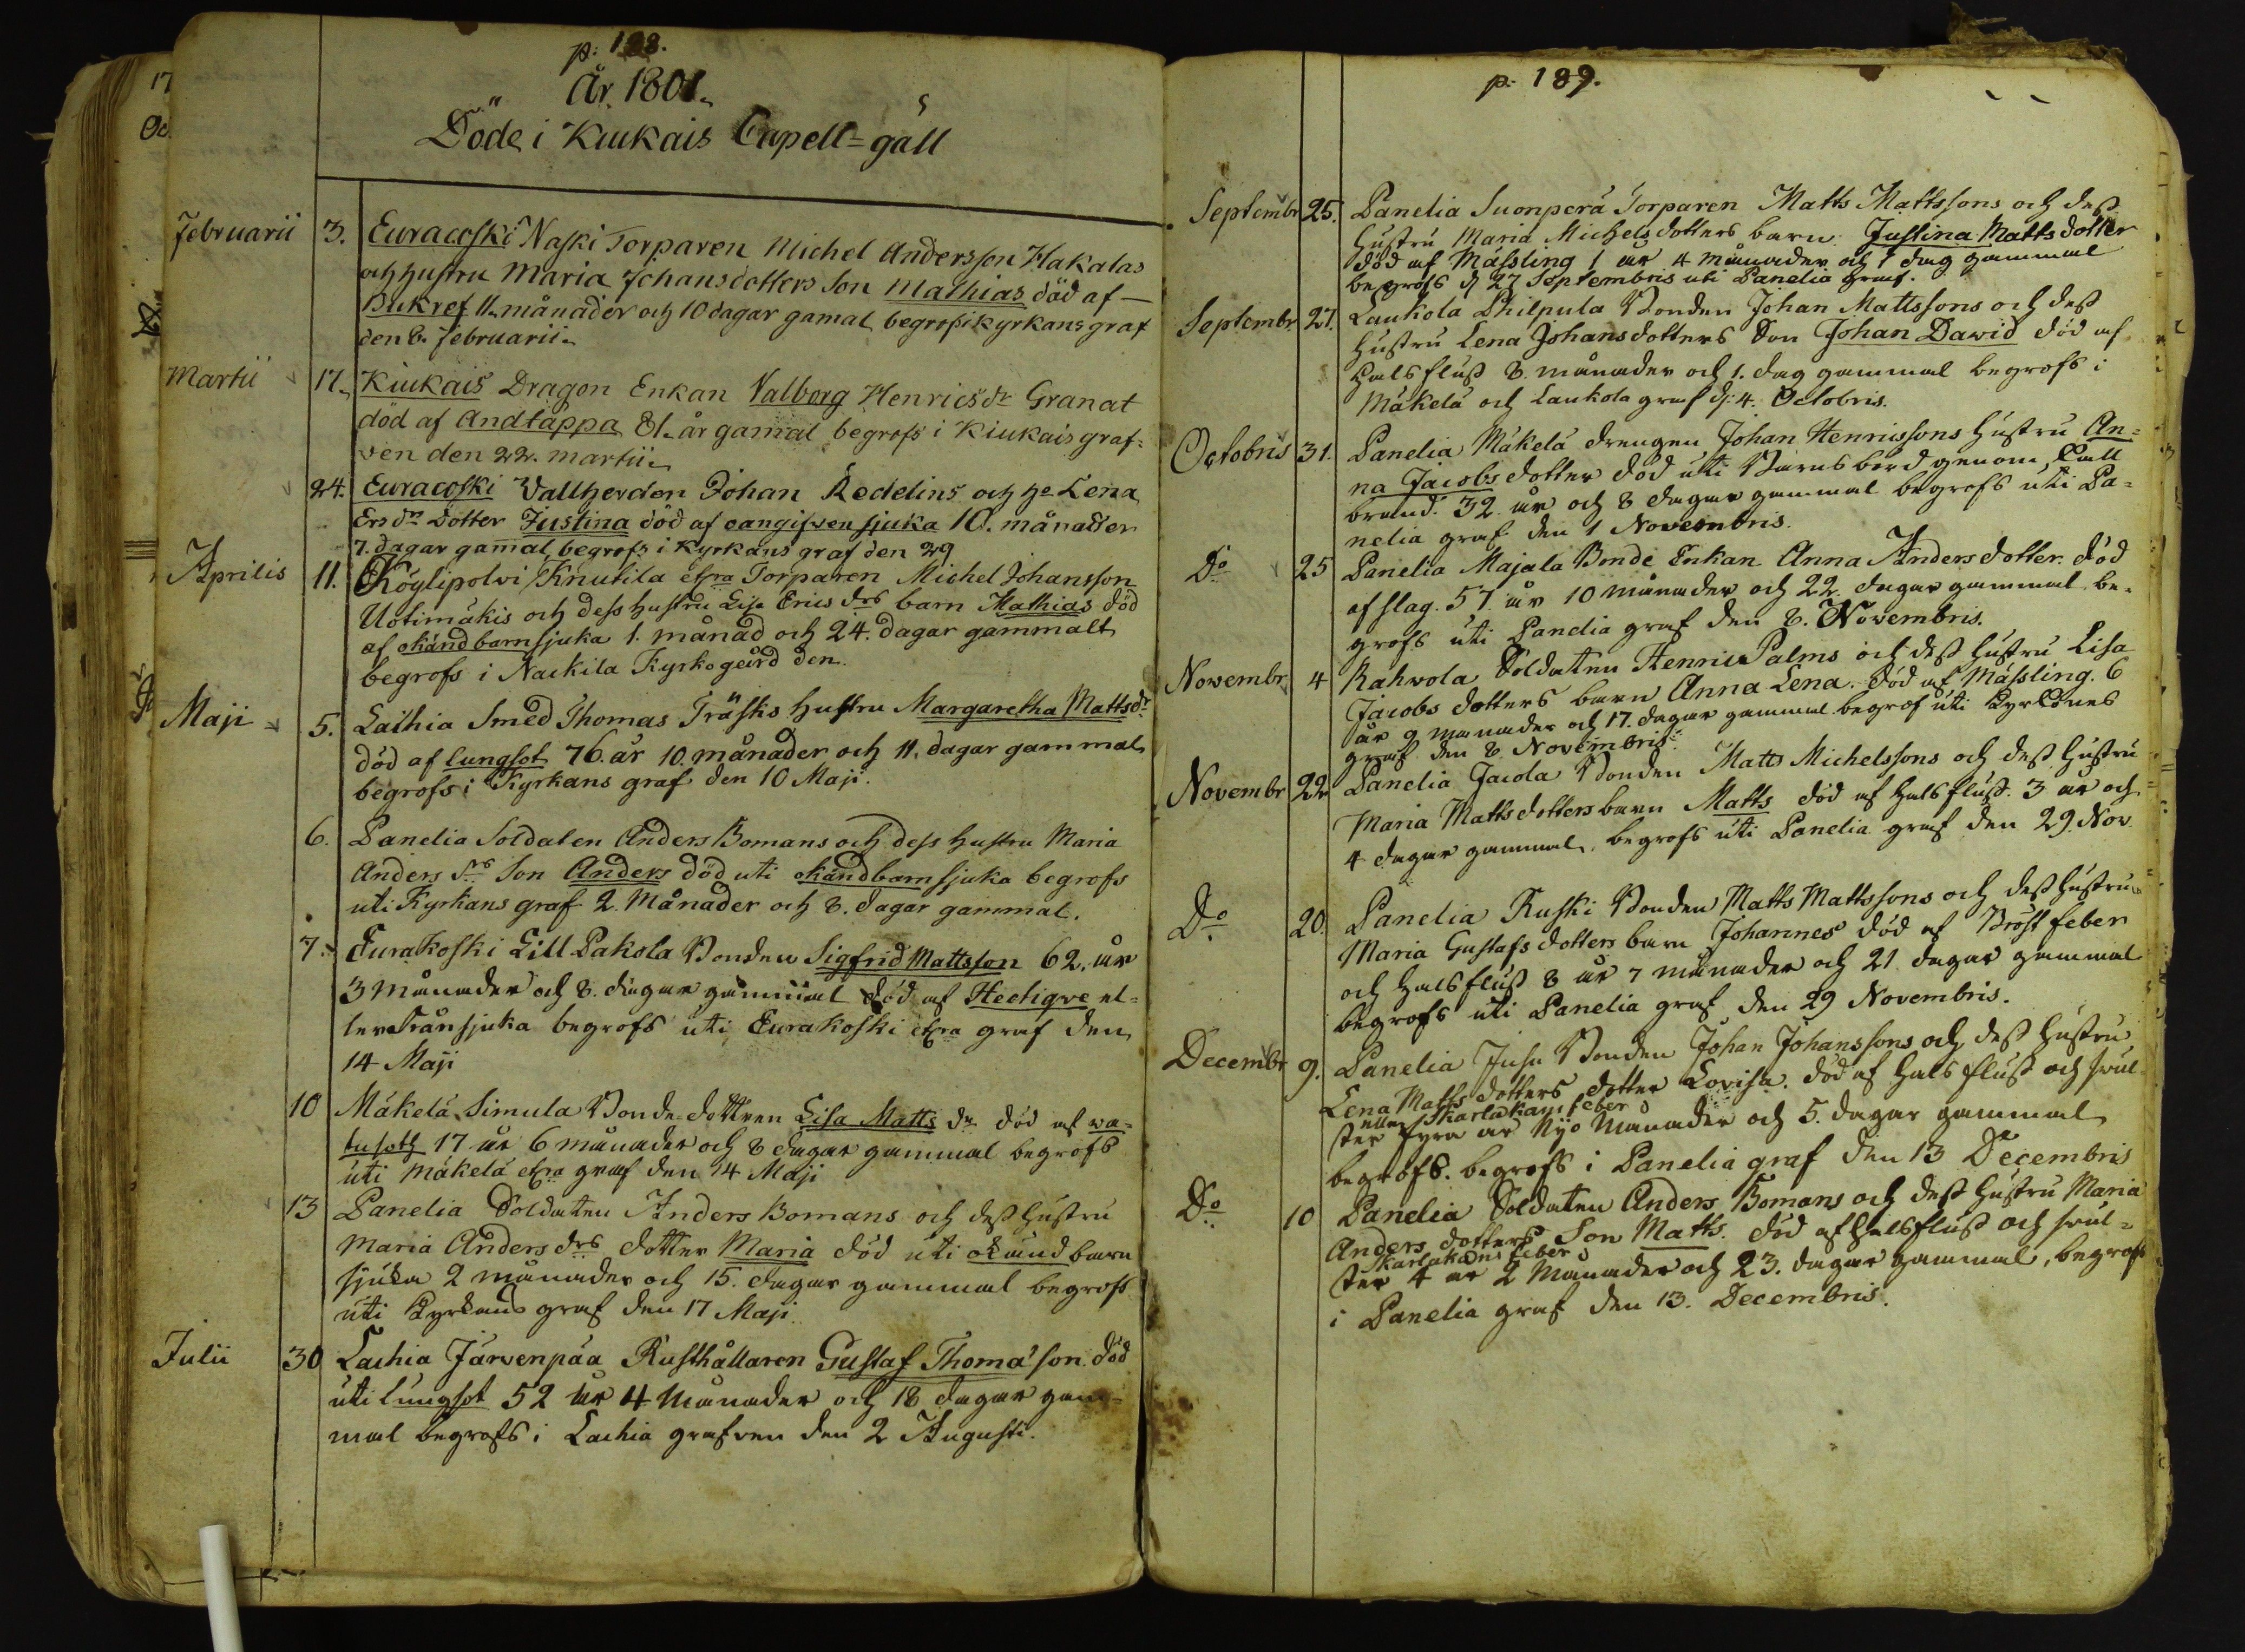 p: 188.
År 1801.
Döde i Kiukais Capell=gäll
Februarii 3. Euracoski Naski Torparen Michel Andersson Hakalas
och hustru Maria Johansdotters Son Mathias död af —
Bukref 11. månader och 10 dagar gamal begrofs i kyrkans graf
den 8. Februarii.
Martii 17. Kiukais Dragon Enkan Valborg Henrics dr Granat
död af Andtäppa 81. år gamal begrofs i Kiukais graf=
ven den 22. martii.
24. Euracoski Vallherden Johan Redelins och h:o Lena
Ers dr Dotter Justina död af oangifven sjuka 10. månader
7. dagar gamal begrofs i Kyrkans graf den 29
Aprilis 11. Köylipolvi Knutila Torparen Michel Johansson
Uotimäkis och dess hustru Lisa Erics drs barn Mathias död
af okänd barnsjuka 1. månad och 24. dagar gammalt
begrofs i Nackila Kyrkogård den
Maji 5. Laihia Smed Thomas Träsks hustru Margaretha Matts dr
död af lungsot 76. år 10. månader och 11. dagar gammal
begrofs i Kyrkans graf den 10 Maji.
6. Panelia Soldaten Anders Bomans och dess hustru Maria
Anders drs Son Anders död uti okänd barnsjuka begrofs
uti Kyrkans graf 2. Månader och 8. dagar gammal.
7. Eurakoski Lill Pakola Bonden Sigfrid Mattsson 62. år
3 Månader och 8. dagar gammal död af Hectiqve el=
ler Tränsjuka begrofs uti Eurakoski graf den
14 Maji
10 Mäkelä Simula Bonde dottren Lisa Matts dr död af va=
tusoth 17 år 6 månader och 8 dagar gammal begrofs
uti Mäkelä graf den 14 Maji
13 Panelia Soldaten Anders Bomans och dess hustru
Maria Anders drs dotter Maria död uti okänd barn
sjuka 2 månader och 15. dagar gammal begrofs
uti Kyrkans graf den 17 Maji.
Julii 30 Lachia Järvenpää Rusthållaren Gustaf Thomasson död
uti Lungsot 52 år 4 Månader och 18 dagar gam=
mal begrofs i Lachia grafven den 2 Augusti.
p: 189.
Septembr 25. Panelia Suonperä Torparen Matts Mattssons och dess
Hustru Maria Michelsdotters barn Justina Matts dotter
död af Mässling 1 år 4 månader och 1 dag gammal
begrofs d 27 Septembris uti Panelia graf.
Septembr 27. Laukola Philpula Bonden Johan Mattssons och dess
Hustru Lena Johansdotters Son Johan Dawid död af
Halsfluss 8. månader och 1. dag gammal begrofs i
Mäkelä och Laukola graf d: 4. Octobris.
Octobris 31. Panelia Mäkelä drengen Johan Henricssons Hustru An=
na Jacobs dotter död uti Barnsbörd genom Kall
brand. 32 år och 8 dagar gammal begrofs uti Pa=
nelia graf den 1 Novembris.
Do 25 Panelia Majala Bonde Enkan Anna Anders dotter död
af slag. 57. år 10 månader och 22. dagar gammal be=
grofs uti Panelia graf den 8. Novembris.
Novembr 4 Rahvola Soldaten Henric Palms och dess hustru Lisa
Jacobs dotters barn Anna Lena. död af Mässling. 6
år 9 månader och 17. dagar gammal begrof uti Kyrkones
graf den 8 Novembris.
Novembr 22 Panelia Jacola Bonden Matts Michelssons och dess Hustru
Maria Mattsdotters barn Matts död af halsfluss. 3 år och
4 dagar gammal, begrofs uti Panelia graf den 29. Nov.
Do 20. Panelia Ruski Bonden Matts Mattssons och dess Hustru
Maria Gustafs dotters barn Johannes död af Bröst feber
och halsfluss 8 år 7 månader och 21 dagar gammal
begrofs uti Panelia graf den 29 Novembris.
Decembr 9. Panelia Jusu Bonden Johan Johanssons och dess hustru
Lena Matts dotters dotter Lovisa. död af hals fluss och svul
eller Skarlakans feber
ster fyra år Nyo Månader och 5. dagar gammal
begrofs. begrofs i Panelia graf den 13 Decembris
Do 10 Panelia Soldaten Anders Bomans och dess hustru Maria
Anders dotters Son Matts. död af halsfluss och svul=
Skarlakans feber
ster 4 år 2 Månader och 23. dagar gammal, begrofs
i Panelia graf den 13. Decembris.